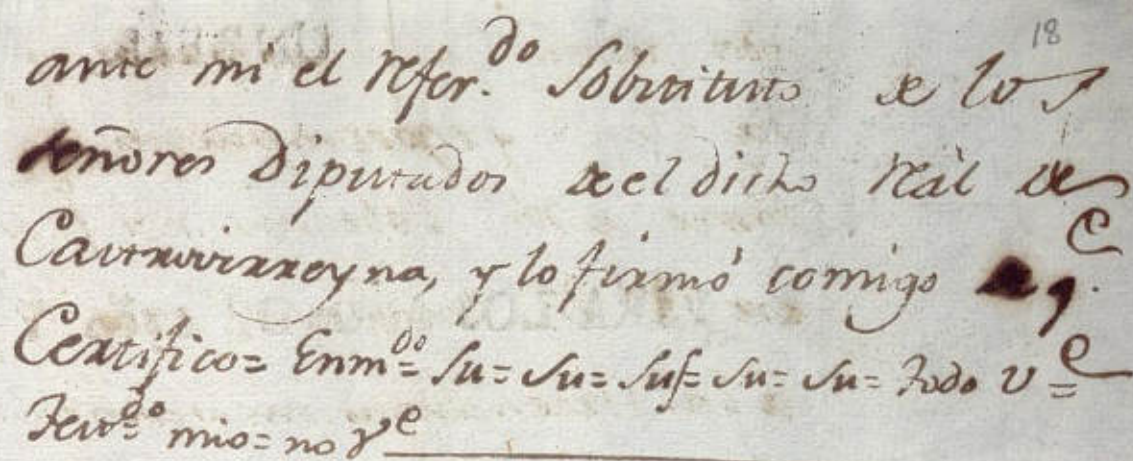 18
ante mi el refer.do Sobstituto de los
señores Diputados de el dicho Real de
Castrovirreyna, y lo firmó comigo de q.e
Certifico= Enm.do= su= su= suf= su= su= todo v.e=
Test.do= mio= no v.e